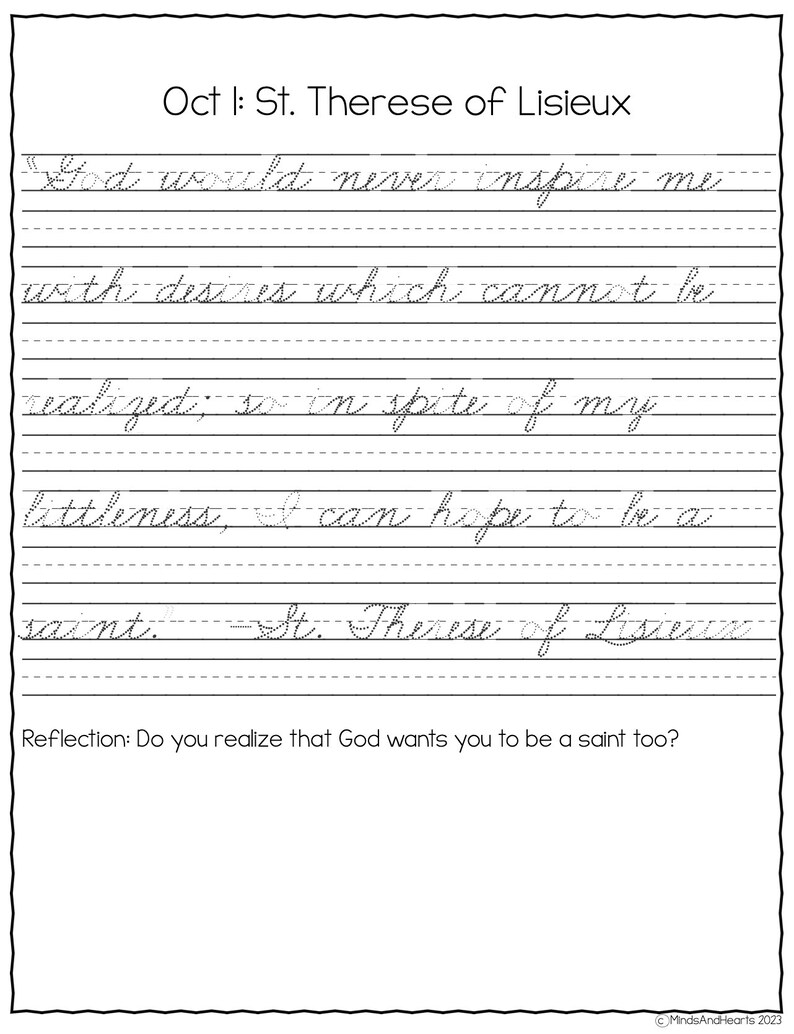 Oct 1: St. Therese of Lisieux
"God would never inspire me
with desires which cannot be
realized; so in spite of my
littleness, I can hope to be a
saint." -St. Therese of Lisieux
Reflection: Do you realize that God wants you to be a saint too?
©MindsAndHearts 2023